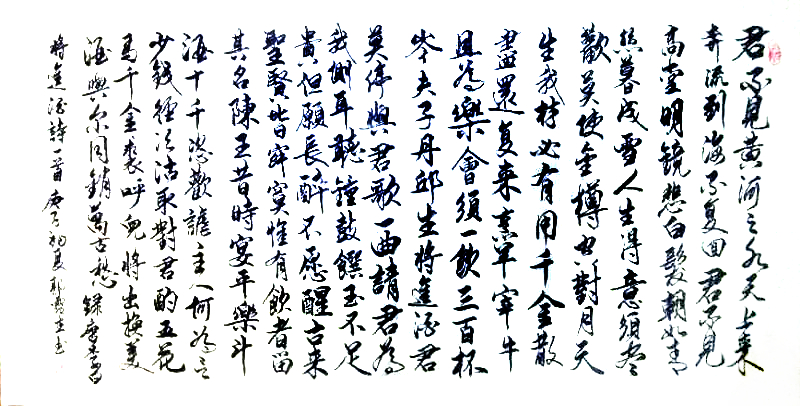 君不見黃河之水天上來
奔流到海不復回君不見
高堂明鏡悲白髮朝如青
絲暮成雪人生得意須盡
歡莫使金樽空對月天
生我材必有用千金散
盡還復來烹羊宰牛
且為樂會須一飲三百杯
岑夫子丹邱生將進酒君
莫停與君歌一曲請君為
我側耳聽鐘鼓饌玉不足
貴但願長醉不愿醒古來
聖賢皆寂寞惟有飲者留
其名陳王昔時宴平樂斗
酒十千恣歡謔主人何為言
少錢徑須沽取對君酌五花
馬千金裘呼兒將出換美
酒與爾同銷萬古愁錄唐李白
將進酒詩一首庚子初夏